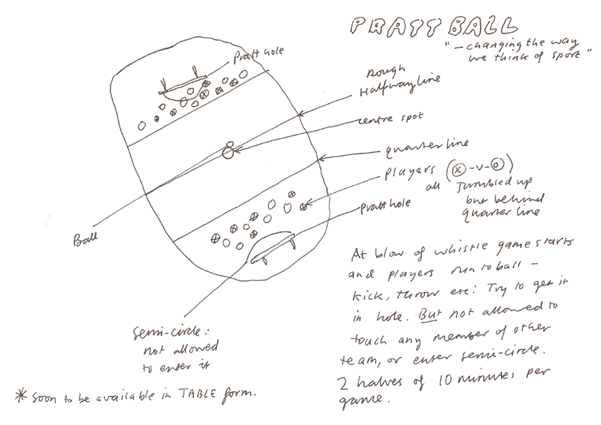 PRATT BALL
"—changing the way
we think of sport"
Pratt hole
Rough
Halfway line
centre spot
quarter line
players (⊗-v-O)
all jumbled up
but behind
quarter line
Pratt hole
Ball
Semi-circle:
not allowed
to enter it
At blow of whistle game starts
and players run to ball –
kick, throw etc: Try to get it
in hole. But not allowed to
touch any member of other
team, or enter semi-circle.
2 halves of 10 minutes per
game.
* Soon to be available in TABLE form.